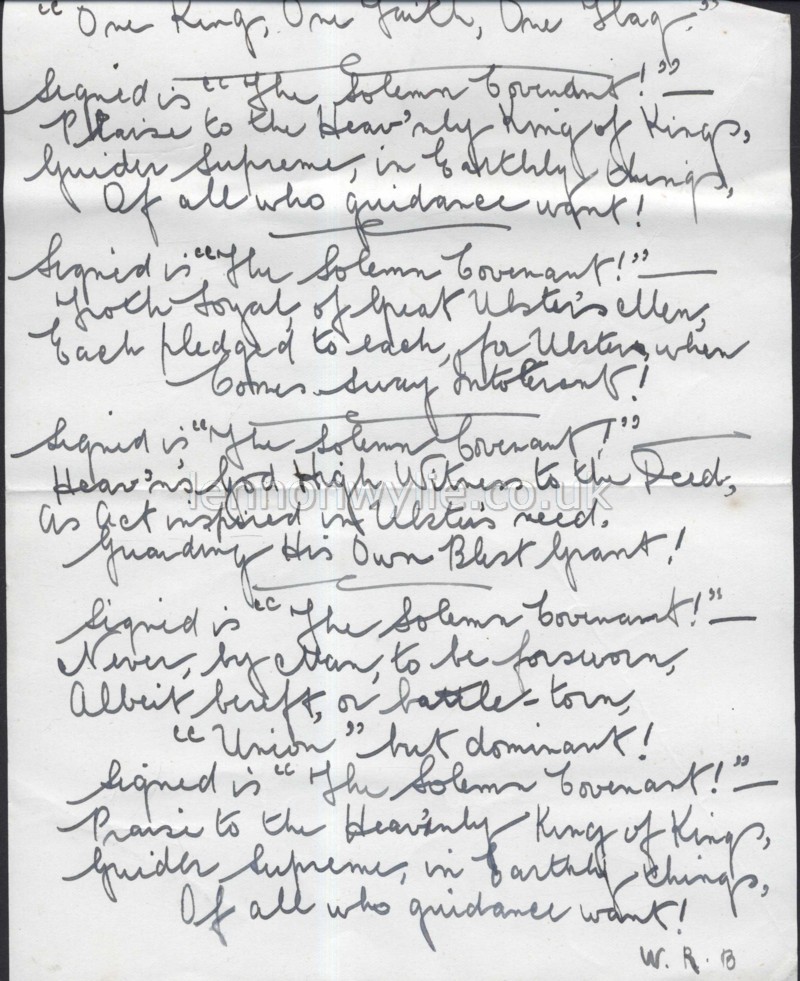 "One King, One Faith, One Flag."
Signed is "The Solemn Covenant!"—
Praise to the Heav'nly King of Kings,
Guider Supreme, in Earthly things,
Of all who guidance want!
Signed is "The Solemn Covenant!"—
Troth Loyal, of Great Ulster's Men,
Each pledged to each, for Ulster, when
Comes Sway Intolerant!
Signed is "The Solemn Covenant!"—
Heav'n's God High Witness to the Deed,
As Act inspired in Ulster's need,
Guarding His Own Blest Grant!
lennonwylie.co.uk
Signed is "The Solemn Covenant!"—
Never, by Man, to be forsworn,
Albeit bereft, or battle-torn,
"Union" but dominant!
Signed is "The Solemn Covenant!"—
Praise to the Heav'nly King of Kings,
Guider Supreme, in Earthly things,
Of all who guidance want!
W. R. B